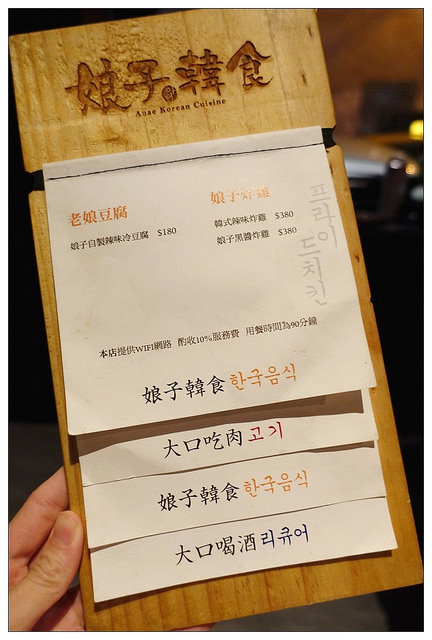 娘子韓食
Anae Korean Cuisine
老娘豆腐
娘子自製辣味冷豆腐 $180
娘子炸雞
韓式辣味炸雞 $380
娘子黑醬炸雞 $380
프라이드치킨
本店提供WIFI網路 酌收10%服務費 用餐時間為90分鐘
娘子韓食 한국음식
大口吃肉 고기
娘子韓食 한국음식
大口喝酒 리큐어